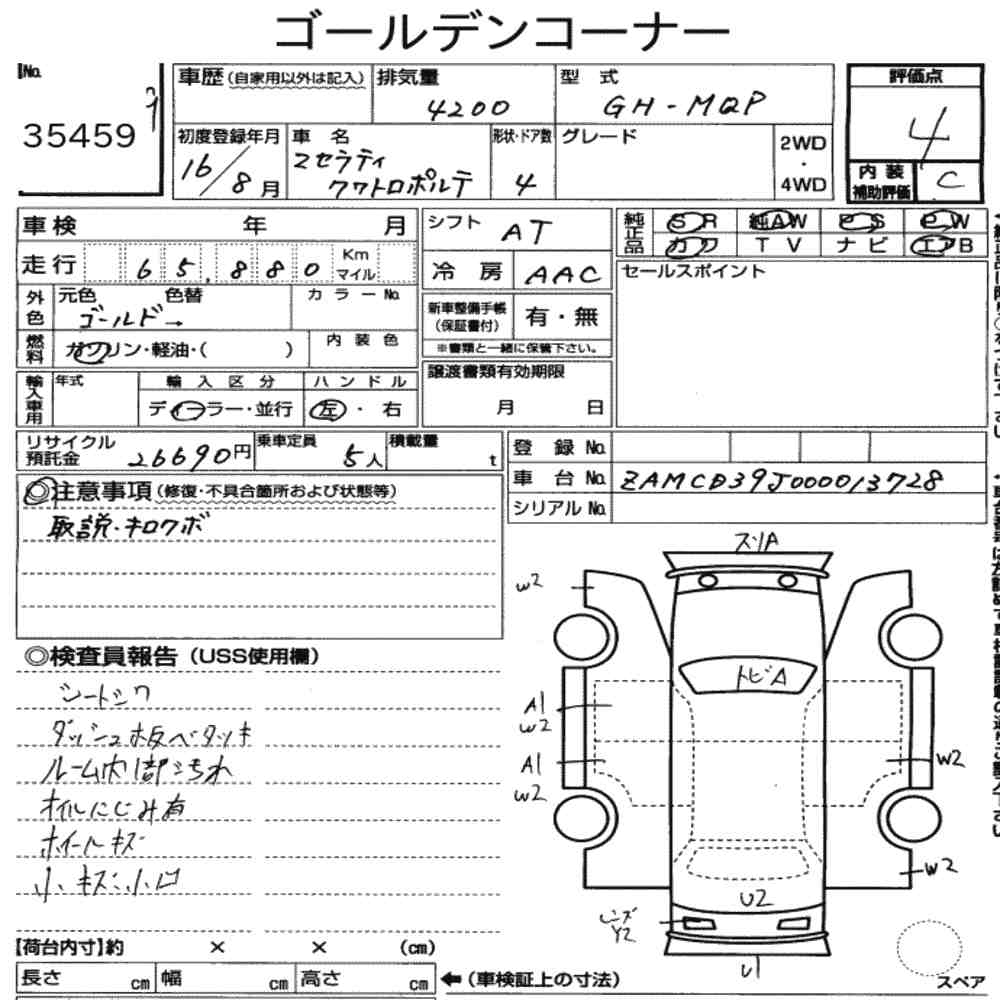 ゴールデンコーナー
No.
35459
車歴(自家用以外は記入)
排気量
4200
型 式
GH-MQP
初度登録年月
16/8月
車 名
マセラティ
クワトロポルテ
形状・ドア数
4
グレード
2WD
・
4WD
評価点
4
内 装
補助評価
C
車検 年 月
走行 65,880 Km
マイル
外色
元色 色替
ゴールド→
カラーNo.
燃料
ガソリン・軽油・( )
内 装 色
輸入車用
年式
輸 入 区 分
ディーラー・並行
ハ ン ド ル
左・右
シフト AT
冷 房 AAC
新車整備手帳
(保証書付)
有・無
※書類と一緒に保管下さい。
譲渡書類有効期限
月 日
純正品
SR 純AW PS PW
カワ TV ナビ エアB
セールスポイント
リサイクル
預託金
26690円
乗車定員
5人
積載量
t
登 録 No.
車 台 No. ZAMCD39J000013728
シリアル No.
◎注意事項(修復・不具合箇所および状態等)
取説・キロクボ
◎検査員報告(USS使用欄)
シートシワ
ダッシュ板ベタツキ
ルーム内1部汚れ
オイルにじみ有
ホイールキズ
小キズ、小凹
スリA
W2
トビA
A1
W2
A1
W2
W2
W2
U2
レンズ
Y2
U1
スペア
【荷台内寸】約 × × (cm)
長さ cm 幅 cm 高さ cm
←(車検証上の寸法)